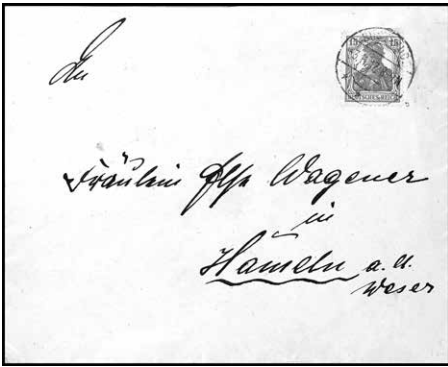 An
Fräulein Ilse Wagener
in
Hameln a. d.
Weser